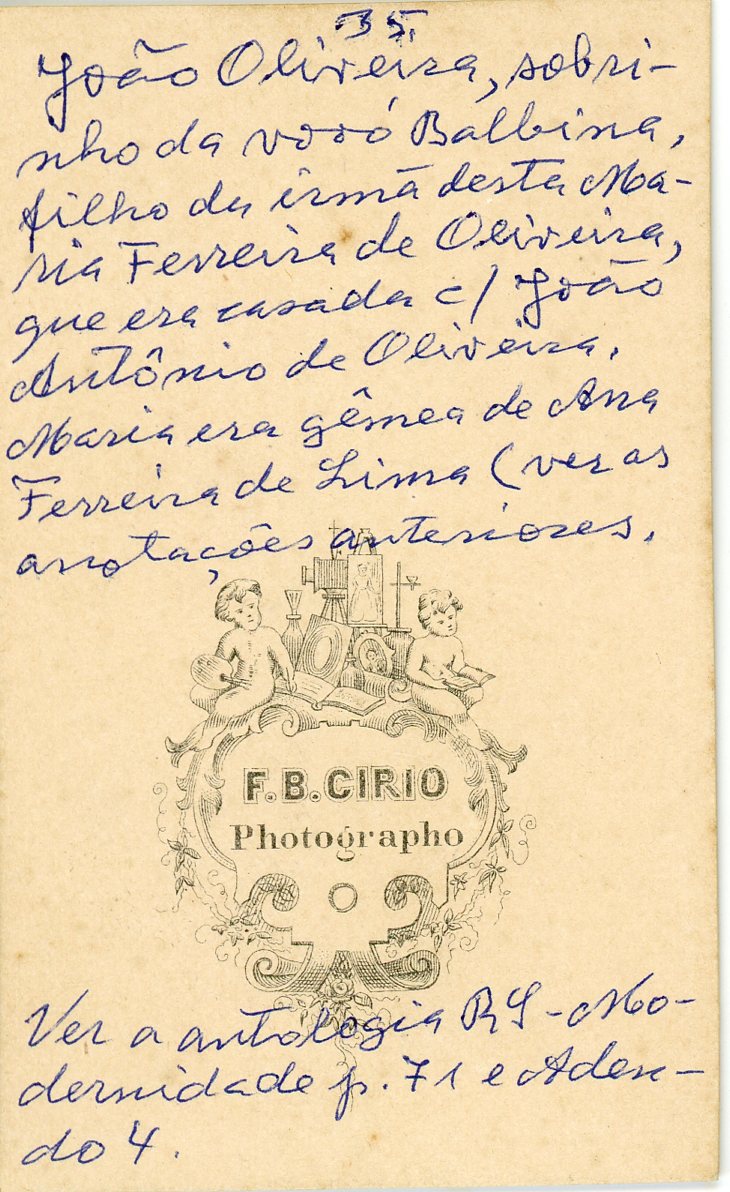 35.
João Oliveira, sobri-
nho da vovó Balbina,
filho da irmã desta Ma-
ria Ferreira de Oliveira,
que era casada c/ João
Antônio de Oliveira.
Maria era gêmea de Ana
Ferreira de Lima (ver as
anotações anteriores.
F. B. CIRIO
Photographo
Ver a antologia RS - Mo-
dernidade p. 71 e Aden-
do 4.